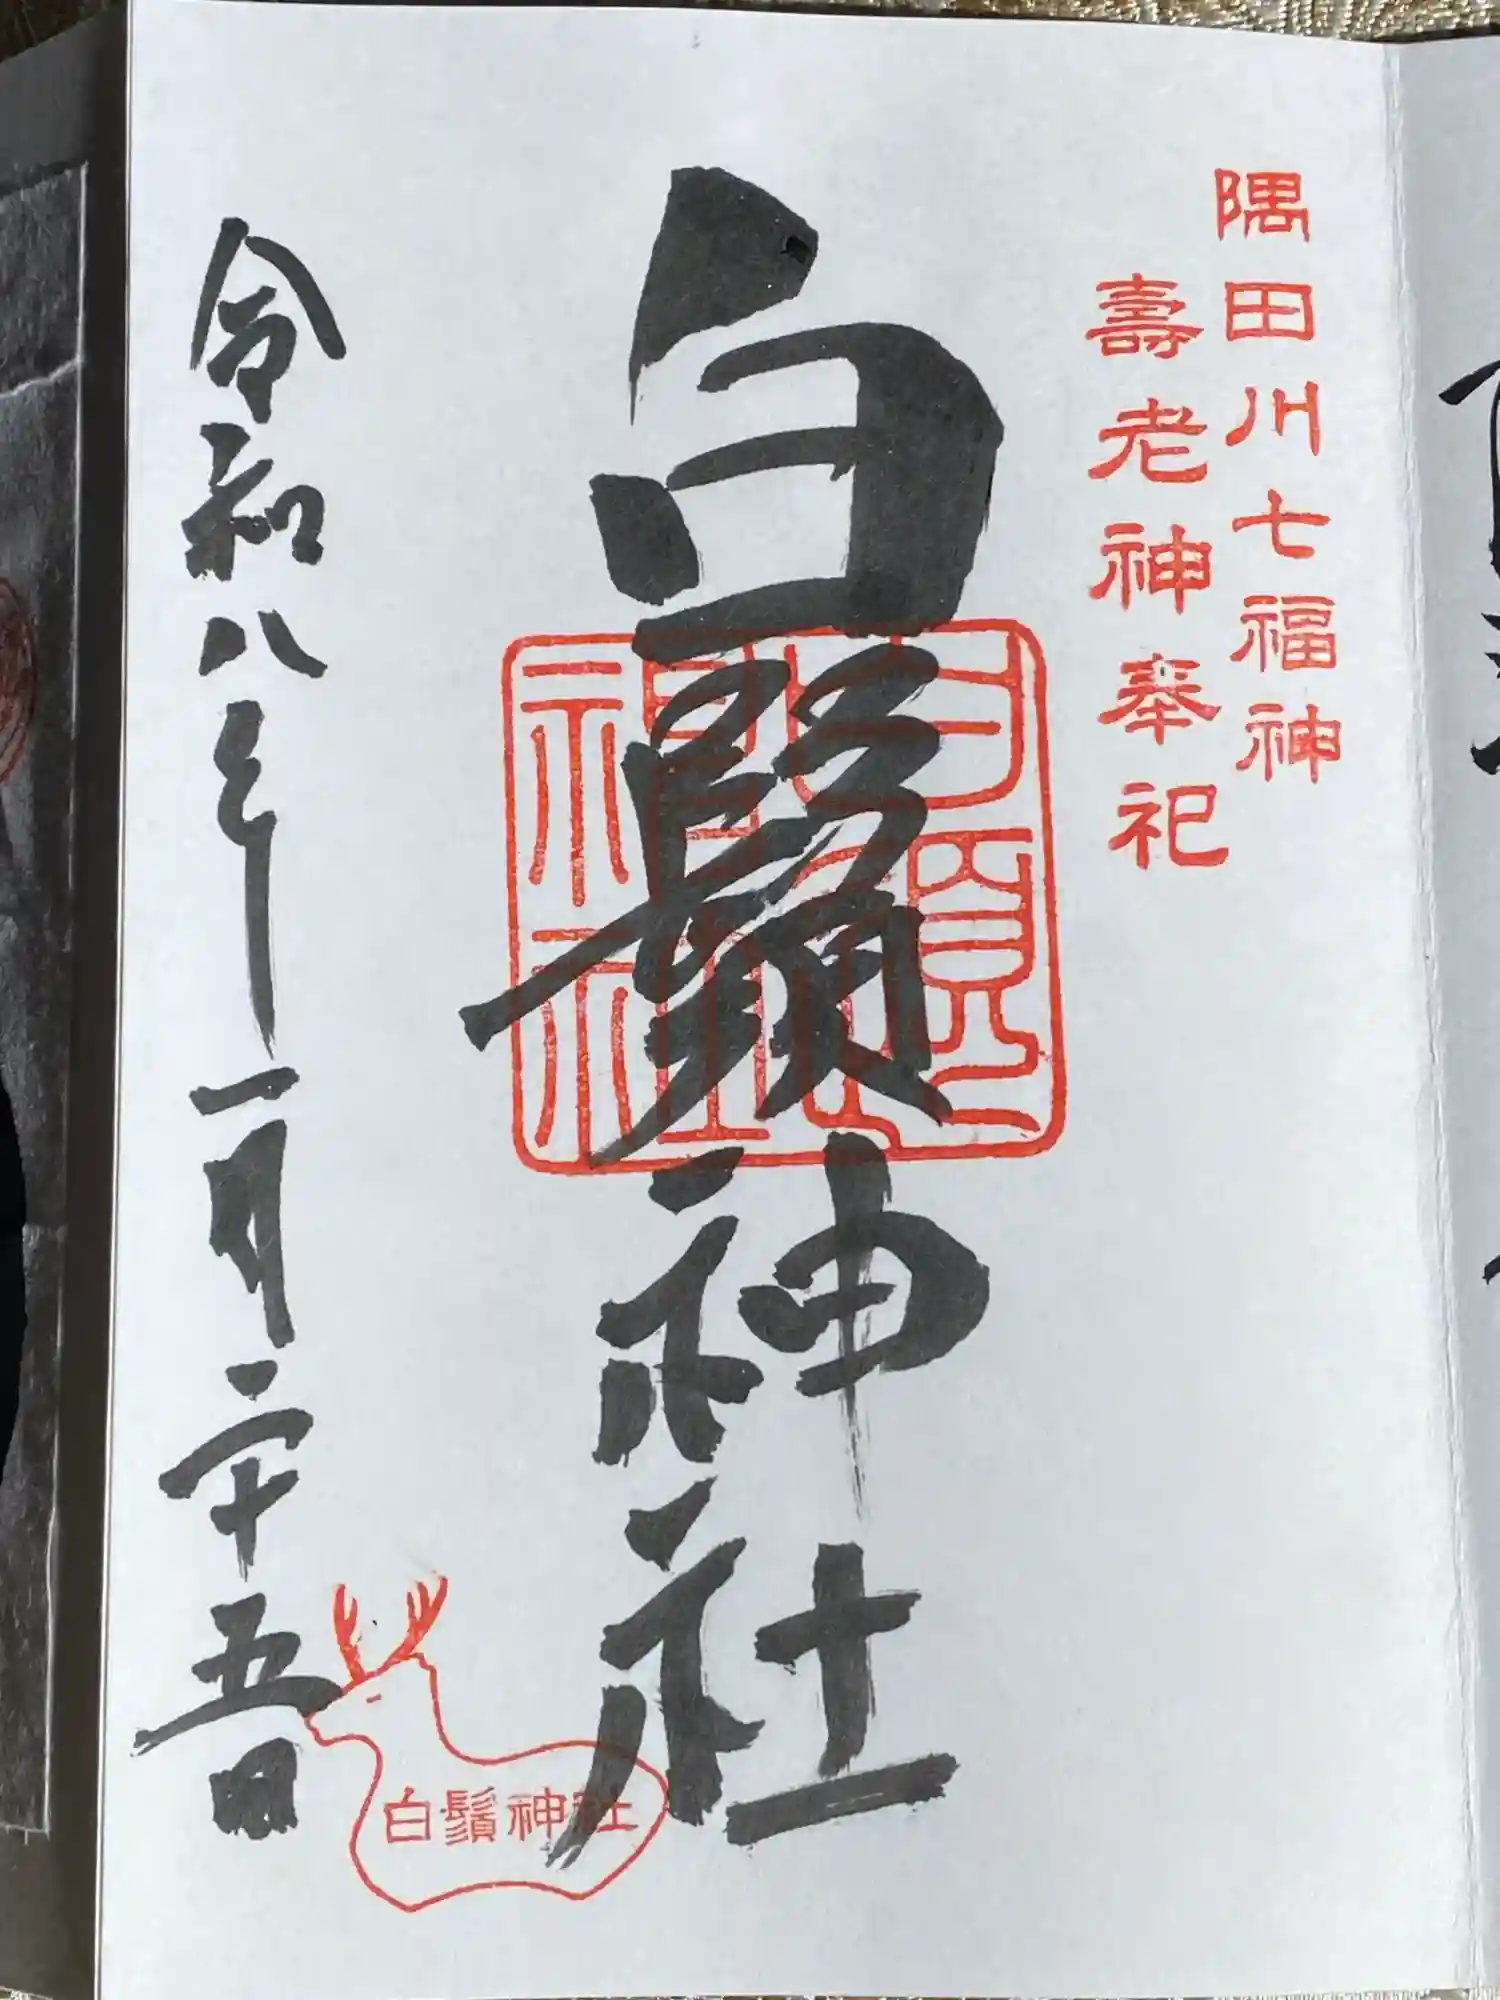 隅田川七福神
壽老神奉祀
白鬚神社
令和八年一月二十五日
白鬚神社